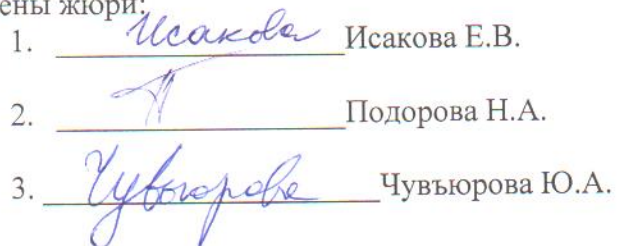 ены жюри:
1. Исакова Исакова Е.В.
2. П Подорова Н.А.
3. Чувъюрова Чувъюрова Ю.А.